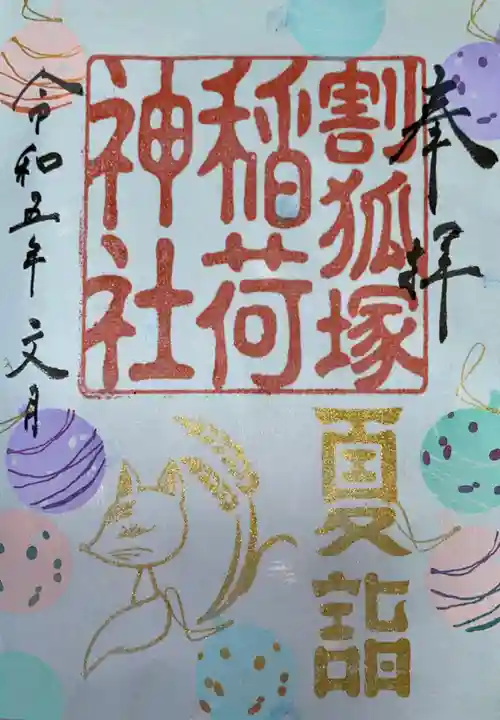 奉拝
割狐塚
稲荷
神社
夏詣
令和五年 文月